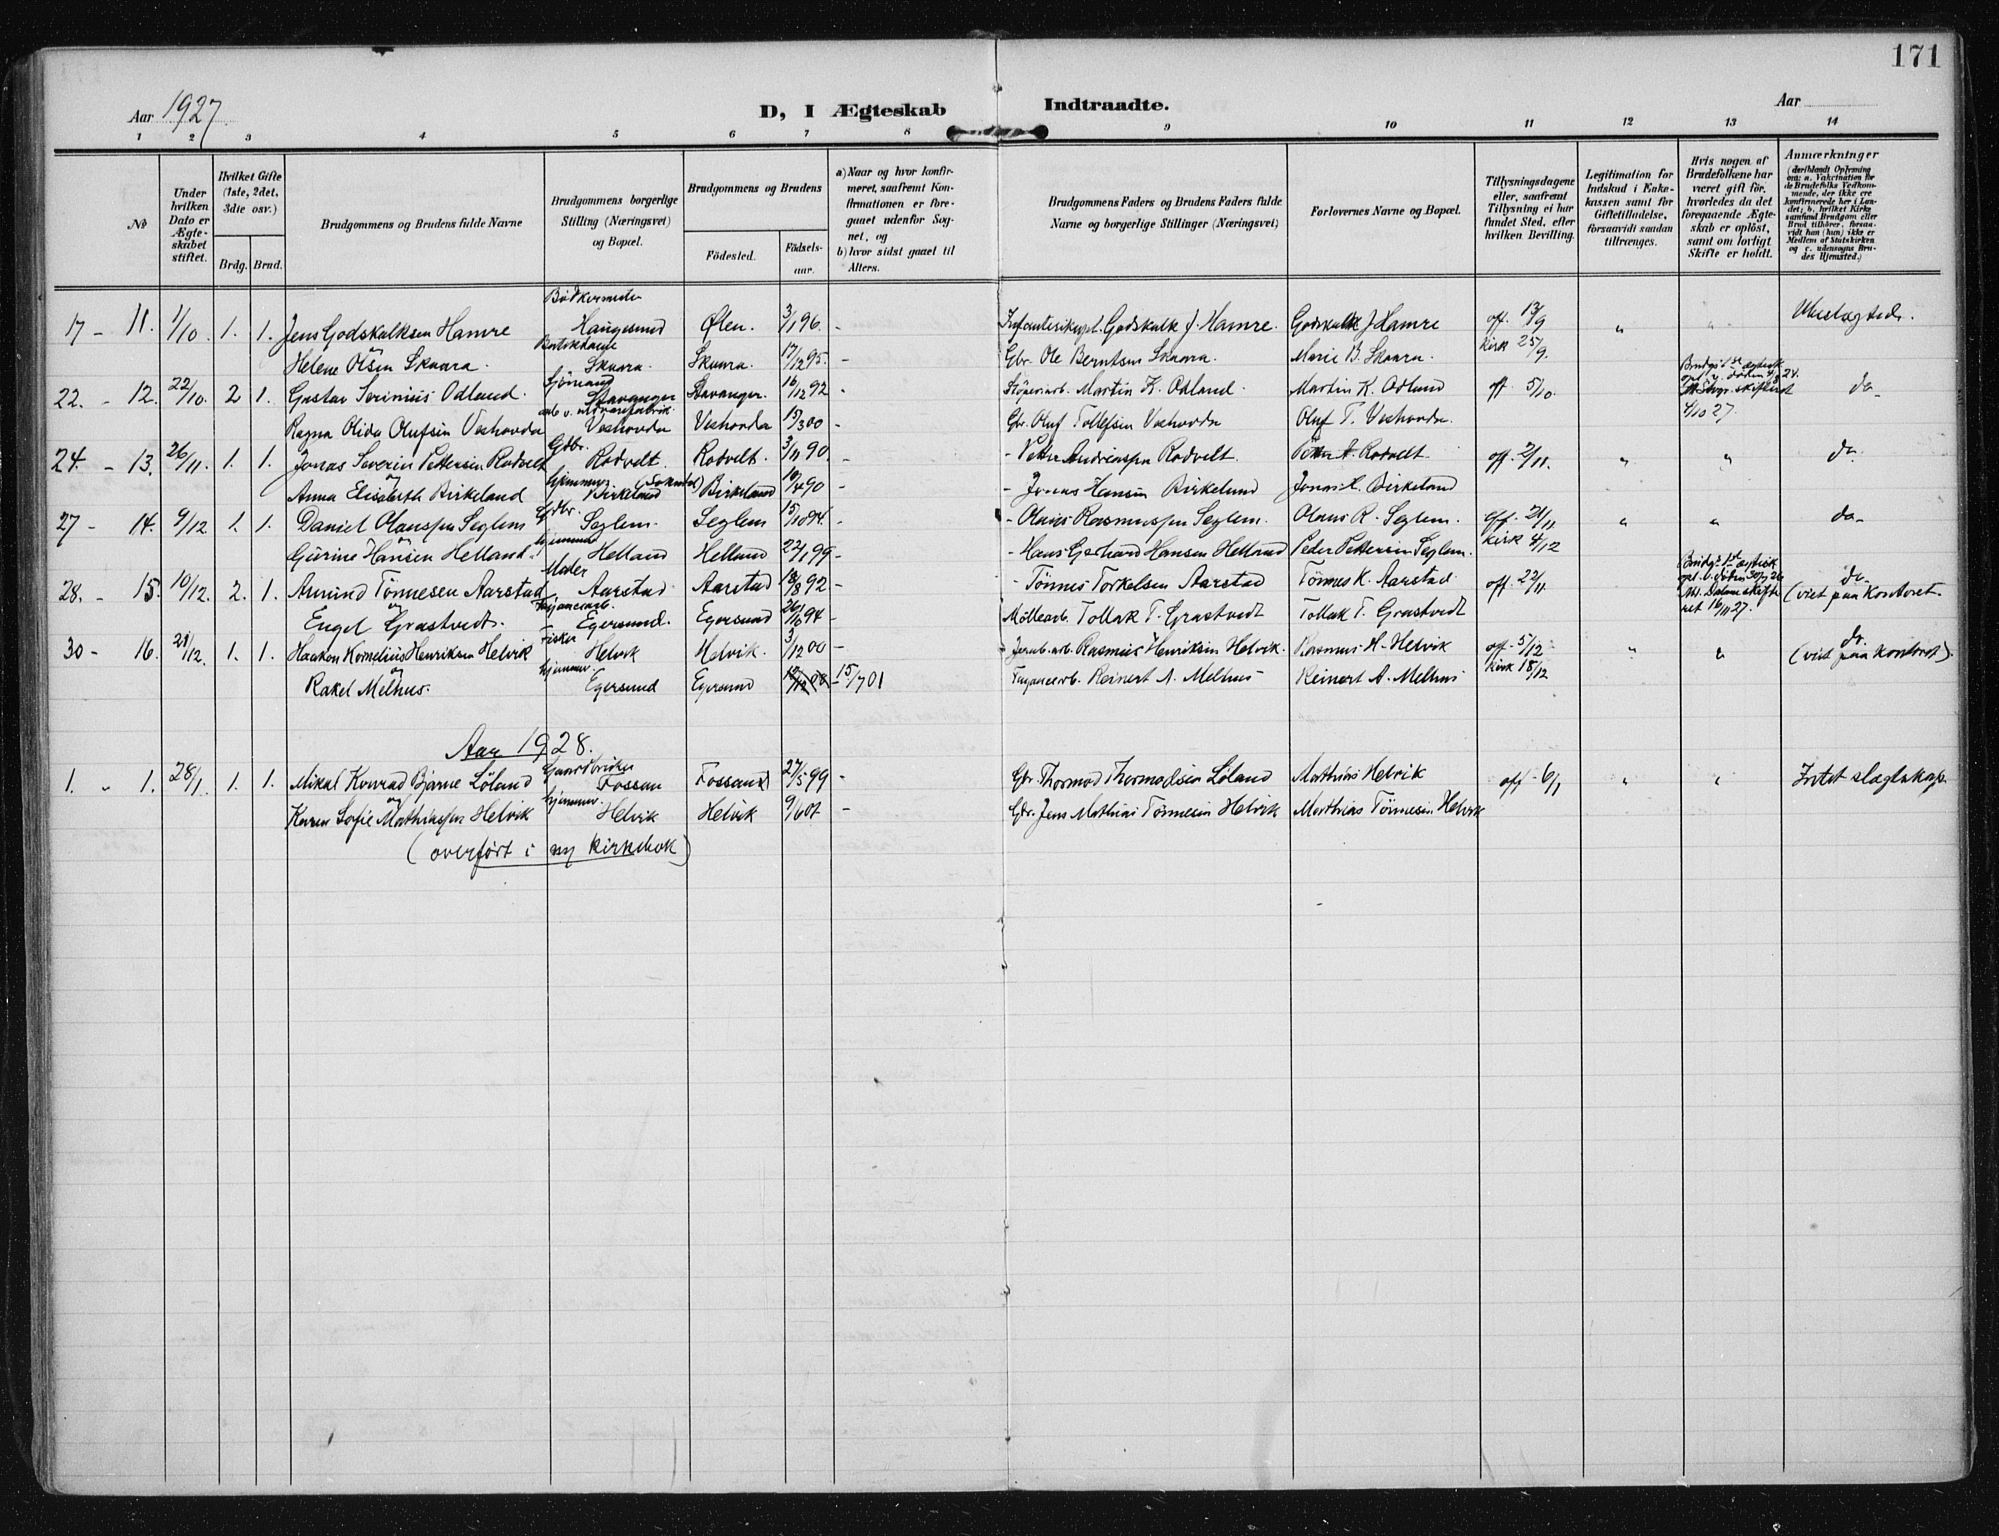 171
Aar 1927.
D, I Ægteskab Indtraadte.
Aar
1 2 3 4 5 6 7 8 9 10 11 12 13 14
No
Under hvilken Dato er Ægteskabet stiftet.
Hvilket Gifte (1ste, 2det, 3die osv.)
Brdg. Brud.
Brudgommens og Brudens fulde Navne
Brudgommens borgerlige Stilling (Næringsvei) og Bopæl.
Brudgommens og Brudens
Fødested. Fødselsaar.
a) Naar og hvor konfirmeret, saafremt Konfirmationen er foregaaet udenfor Sognet, og
b) hvor sidst gaaet til Alters.
Brudgommens Faders og Brudens Faders fulde Navne og borgerlige Stillinger (Næringsvei)
Forlovernes Navne og Bopæl.
Tillysningsdagene eller, saafremt Tillysning ei har fundet Sted, efter hvilken Bevilling.
Legitimation for Indskud i Enkekassen samt for Giftetilladelse, forsaavidt saadan tillrænges.
Hvis nogen af Brudefolkene har været gift før, hvorledes da det foregaaende Ægteskab er opløst, samt om lovligt Skifte er holdt.
Anmærkninger (deriblandt Oplysning om: a. Vakcination for de Brudefolks Vedkommende, der ikke ere konfirmerede her i Landet; b. hvilket Kirkesamfund Brudgom eller Brud tilhører, forsaavidt han (hun) ikke er Medlem af Statskirken og c. udensogns Brudes Hjemsted.)
17 - 11. 1/10 1. 1. Jens Godskalksen Hamre Haugesund Ølen. 3/1 96. - Godskalk J. Hamre. Godskalk J Hamre off. 13/9 " " Ubeslægtede.
Helene Olsen Skaara Skaara. Skaara. 17/12 95. - Gbr. Ole Berntsen Skaara. Marie B. Skaara. kirk 25/9.
22. - 12. 22/10. 2 1. Gustav Serinius Odland. Sjömand Stavanger Stavanger. 16/12 92 - Martin K. Odland. Martin K. Odland off 5/10. 4/10 27. do
Ragna Olida Olufsen Veshovda Veshovda Veshovda 15/3 00 - Gbr. Oluf Tollefsen Veshovda Oluf T. Veshovda.
24. - 13. 26/11. 1. 1. Jonas Severin Pettersen Rodvelt Gdbr. Rodvelt. Rodvelt. 3/11 90. - - Petter Andreassen Rodvelt. Petter A. Rodvelt off. 2/11. " " do.
Anna Elisabeth Birkeland hjemmev. Birkeland (Sokndal) Birkeland 10/4 90 - - Jonas Hansen Birkeland Jonas H. Birkeland
27 - 14. 9/12 1. 1. Daniel Olaussen Seglem Gdbr. Seglem. Seglem 15/10 94. - - Olaus Rasmussen Seglem. Olaus R. Seglem. off. 21/11 " " do-
Gurine Hansen Helland. hjemmev Helland Helland 22/1 99 - - Hans Gerhard Hansen Helland Peder Pettersen Seglem. kirk 4/12
28. - 15. 10/12. 2. 1. Amund Tönnesen Aarstad Maler Aarstad Aarstad 18/8 92 - - Tönnes Torkelsen Aarstad Tönnes K. Aarstad. off 22/11. 16/11 27. do (viet paa Kontoret.
Engel Grastvedt. Egersund. Egersund 26/10 94 - Möllearb. Tollak T. Grastvedt Tollak T. Grastvedt
30 - 16. 21/12. 1. 1. Haakon Kornelius Henriksen Helvik Fisker Helvik Helvik. 3/12 00 - Rasmus Henriksen Helvik. Rasmus H. Helvik off 5/12 " " do (viet paa kontoret).
Rakel Melhus. hjemmev. Egersund Egersund 15/7 01 Reinert A. Melhus Reinert A. Melhus kirk 18/12
Aar 1928.
1. " 1. 28/1. 1. 1. Mikal Konrad Bjarne Löland Gaardbruker Fossan Fossan 27/5 99 - Gbr. Thormod Thormodsen Löland Matthias Helvik off 6/1 " " Intet slægtskap.
Karen Sofie Mathiassen Helvik hjemmev. Helvik Helvik 9/6 07 - Gbr. Jens Mathias Tönnesen Helvik Matthias Tönnesen Helvik
(overført i ny kirkebok)